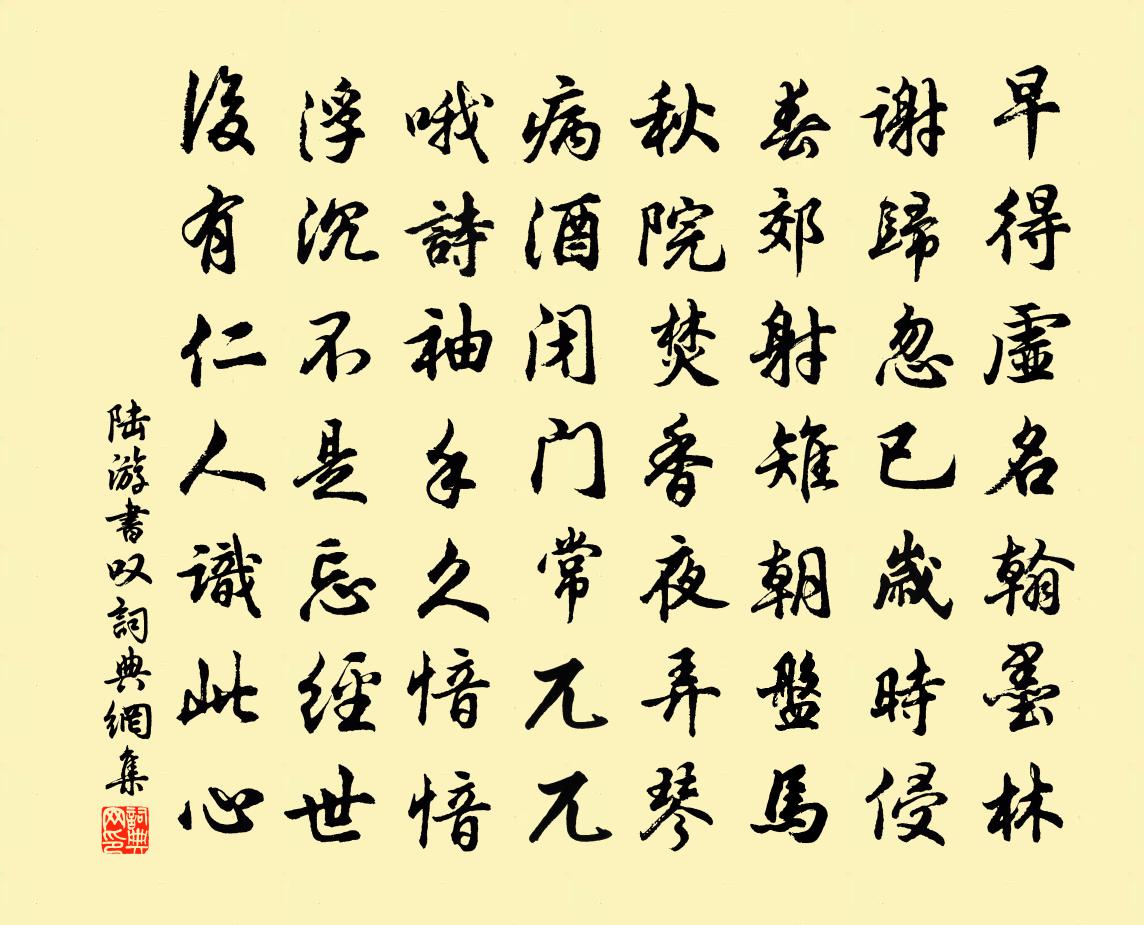 早得虛名翰墨林
謝歸忽已歲時侵
春郊射雉朝盤馬
秋院焚香夜弄琴
病酒閉門常兀兀
哦詩袖手久愔愔
浮沉不是忘經世
後有仁人識此心
陆游書叹詞典網集
詞典网印